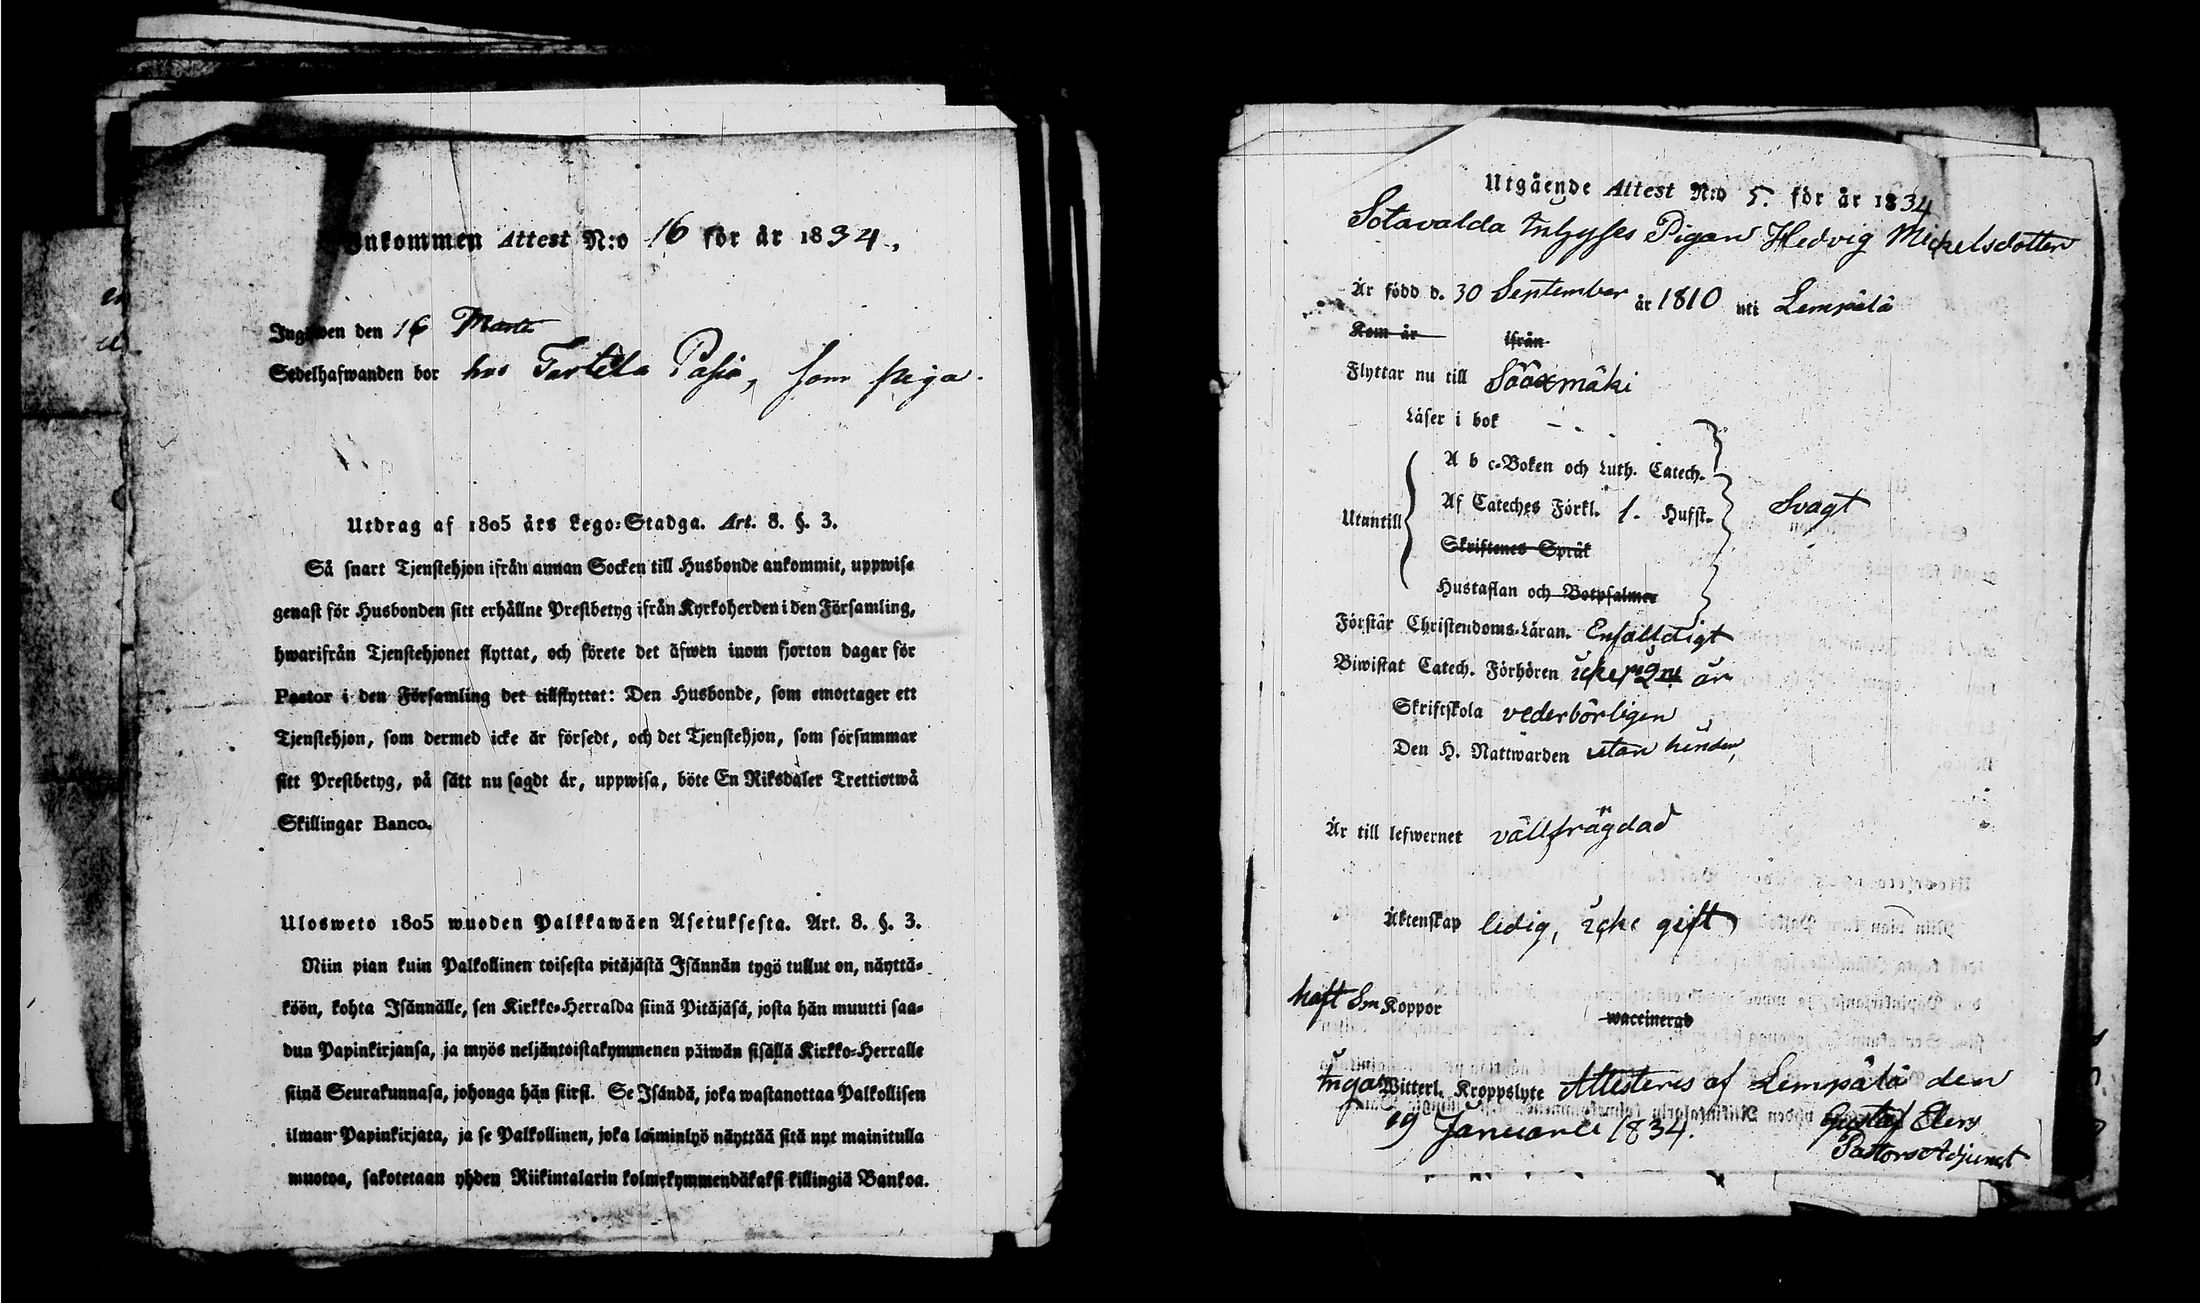 Inkommen Attest N:o 16 för år 1834.
Ingifwen den 16 Martii
Sedelhafwanden bor hos Tarttila Pasio, som piga.
Utdrag af 1805 års Lego-Stadga. Art. 8. §. 3.
Så snart Tjenstehjon ifrån annan Socken till Husbonde ankommit, uppwise
genast för Husbonden sitt erhållne Prestbetyg ifrån Kyrkoherden i den Församling,
hwarifrån Tjenstehjonet flyttat, och förete det äfwen inom fjorton dagar för
Pastor i den Församling det tillflyttat: Den Husbonde, som emottager ett
Tjenstehjon, som dermed icke är försedt, och det Tjenstehjon, som försummar
sitt Prestbetyg, på sätt nu sagdt är, uppwisa, böte En Riksdaler Trettiotwå
Skillingar Banco.
Ulosweto 1805 wuoden Palkkawäen Asetuksesta. Art. 8. §. 3.
Niin pian kuin Palkollinen toisesta pitäjästä Isännän tygö tullut on, näyttä-
köön, kohta Isännälle, sen Kirkko-Herralda siinä Pitäjäsä, josta hän muutti saa-
dun Papinkirjansa, ja myös neljäntoistakymmenen päiwän sisällä Kirkko-Herralle
siinä Seurakunnasa, johonga hän siirsi. Se Isändä, joka wastanottaa Palkollisen
ilman Papinkirjata, ja se Palkollinen, joka laiminlyö näyttää sitä nyt mainitulla
muotoa, sakotetaan yhden Riikintalarin kolmekymmendäkaksi killingiä Bankoa.
Utgående Attest N:o 5. för år 1834
Sotavalda Inhyses Pigan Hedvig Mickelsdotter
Är född d. 30 September år 1810 uti Lempälä
Kom år ifrån
Flyttar nu till Sääxmäki
Läser i bok - - -
A b c-Boken och Luth. Catech.
Utantill Af Cateches Förkl. 1. Hufst. Svagt
Skriftenes Språk
Hustaflan och Botpsalmer
Förstår Christendoms-Läran. Enfalldigt
Biwistat Catech. Förhören icke på 2ne år
Skriftskola vederbörligen
Den H. Nattwarden utan hinder,
Är till lefwernet vällfrägdad
Äktenskap ledig, icke gift
haft Sm Koppor waccinerad
Inga Witterl. Kroppslyte Attesteres af Lempälä den
19 Januarii 1834. Gustaf Elers
Pastors Adjunct